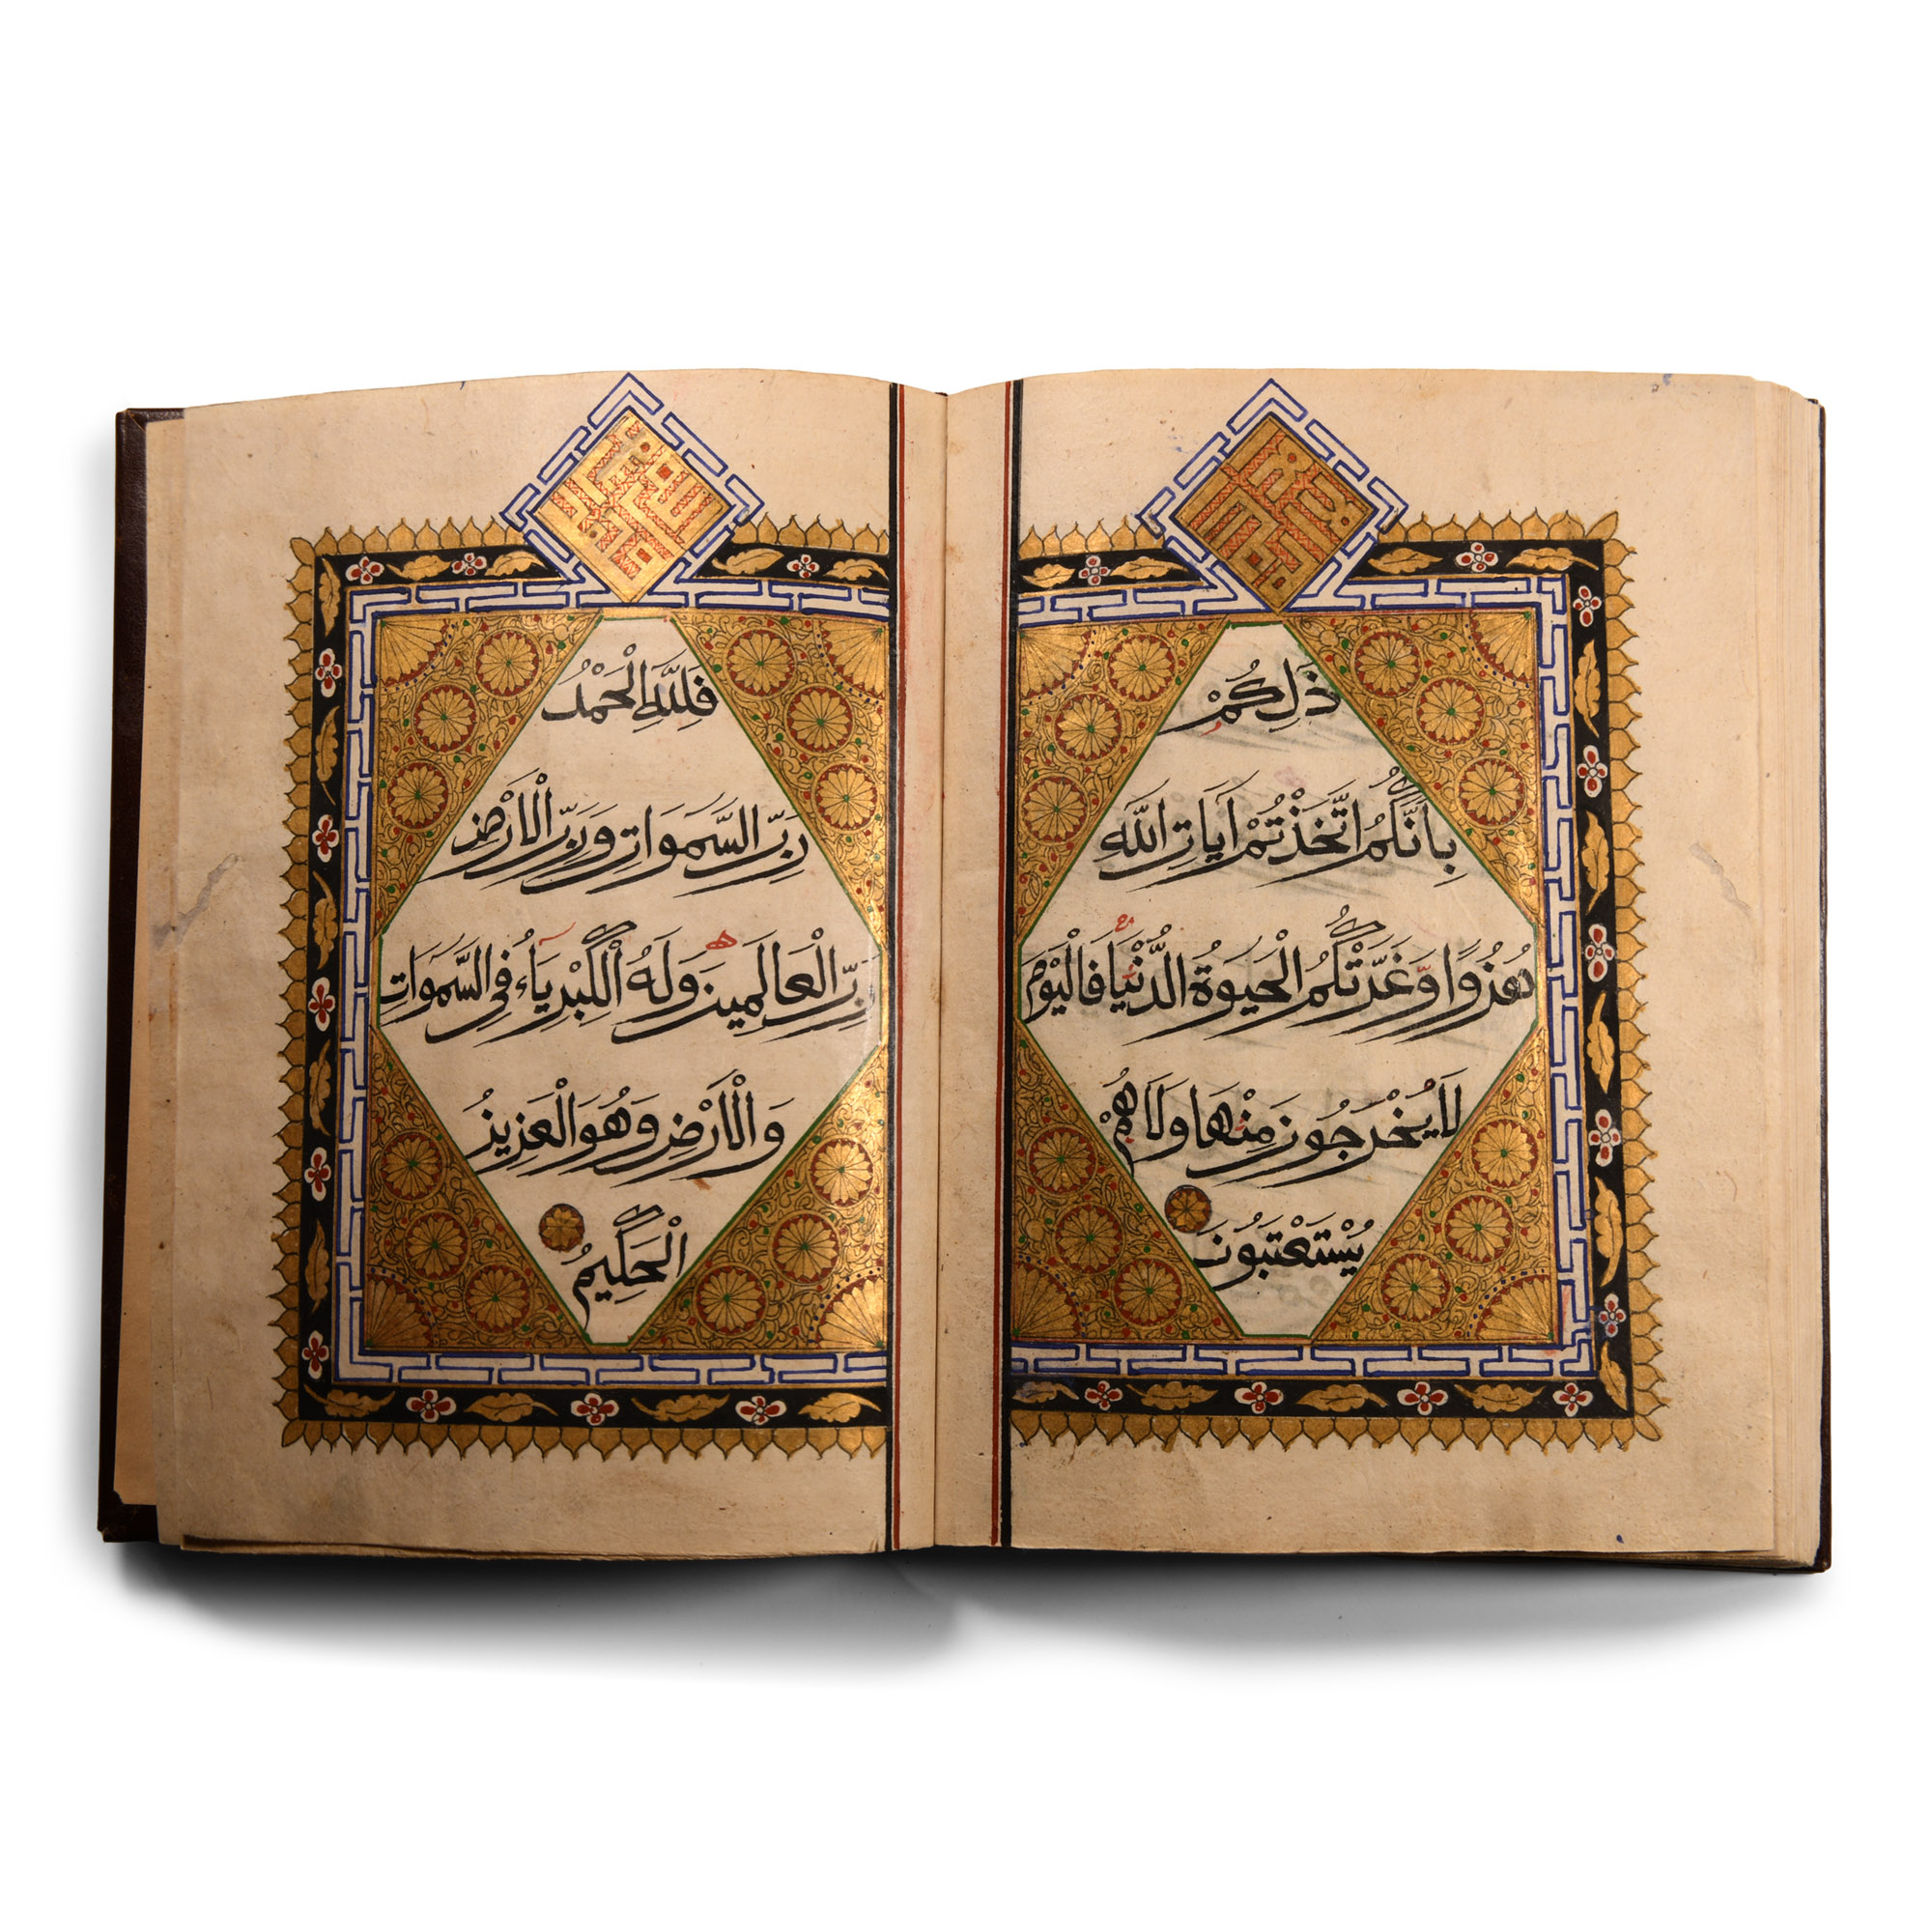 ذَلِكُمْ
بِاَنَّكُمُ اتَّخَذْتُمْ اَيَاتِ اللَّهِ
هُزُوًا وَّغَرَّتْكُمُ الْحَيَوةُ الدُّنْيَا فَالْيَوْمَ
لَا يُخْرَجُونَ مِنْهَا وَلَا هُمْ
يُسْتَعْتَبُونَ
فَلِلَّهِ الْحَمْدُ
رَبِّ السَّمَوَاتِ وَرَبِّ الْاَرْضِ
رَبِّ الْعَالَمِينَ وَلَهُ الْكِبْرِيَاءُ فِي السَّمَوَاتِ
وَالْاَرْضِ وَهُوَ الْعَزِيزُ
الْحَكِيمُ